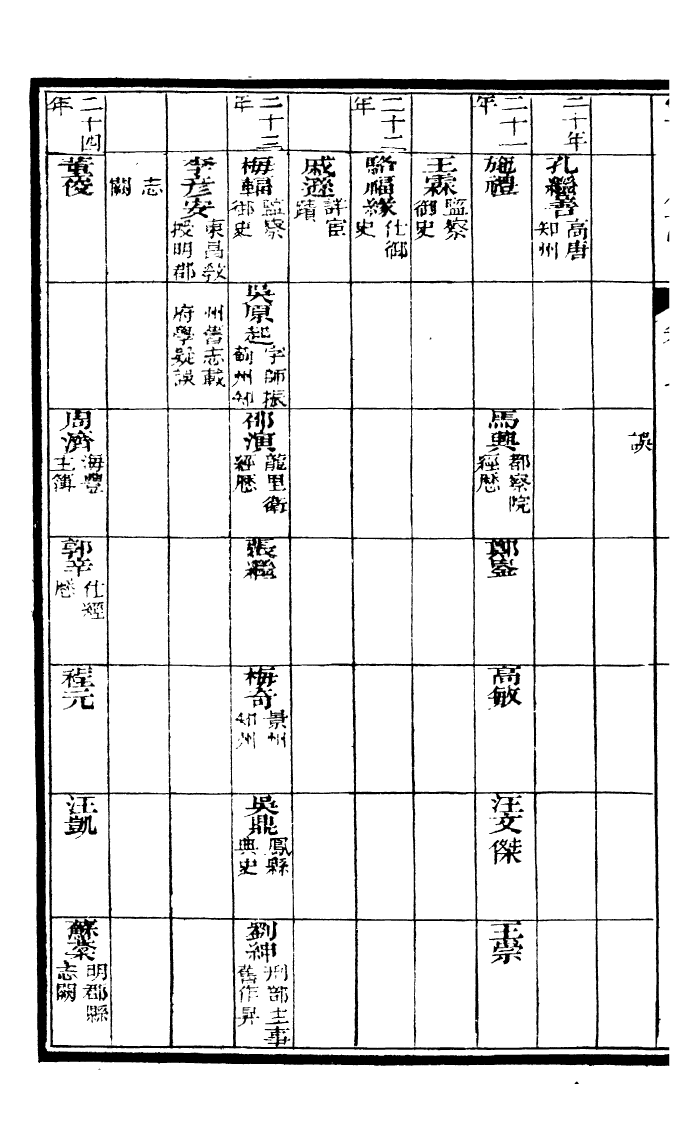 誤
二十年
孔繼善 高唐知州
二十一年
施禮
馬興 都察院經歷
鄭崟
高敏
汪文傑
王崇
王霖 監察御史
二十二年
駱福緣 仕御史
戚遜 詳宦蹟
二十三年
梅輻 監察御史
吳原起 字師振薊州知
邵演 龍里衛經歷
張繼
梅奇 景州知州
吳鼎 鳳縣典史
劉紳 刑部主事舊作昇
李彥安 東昌教授明郡
州舊志載府學疑誤
志闕
二十四年
董俊
周濟 海豐主簿
郭辛 仕經歷
程元
汪凱
蘇棻 明郡縣志闕